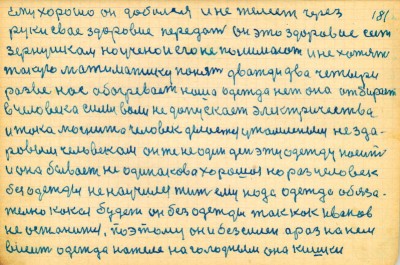 ему хорошо он добился и не желает через 181
руки свае здоровие передат он это здоровие сеит
зернушкам но ученои его не понимают и не хотят
такую математику понят дважды два четыри
разве нас обогревает наша одежда нет она отбирает
в человека силы воли не допускает электричества
и тока может человек делается умаленным не здо-
ровым человекам он те не один ден эту одежду носит
и она бывает не одинакова хороша но раз человек
без одежды не научился жит ему нада одежда обяза-
телно какая будет он без одежды так как Иванов
не останится, поэтому он и безсилен а раз на нем
висит одежда на теле на голодным она кишки